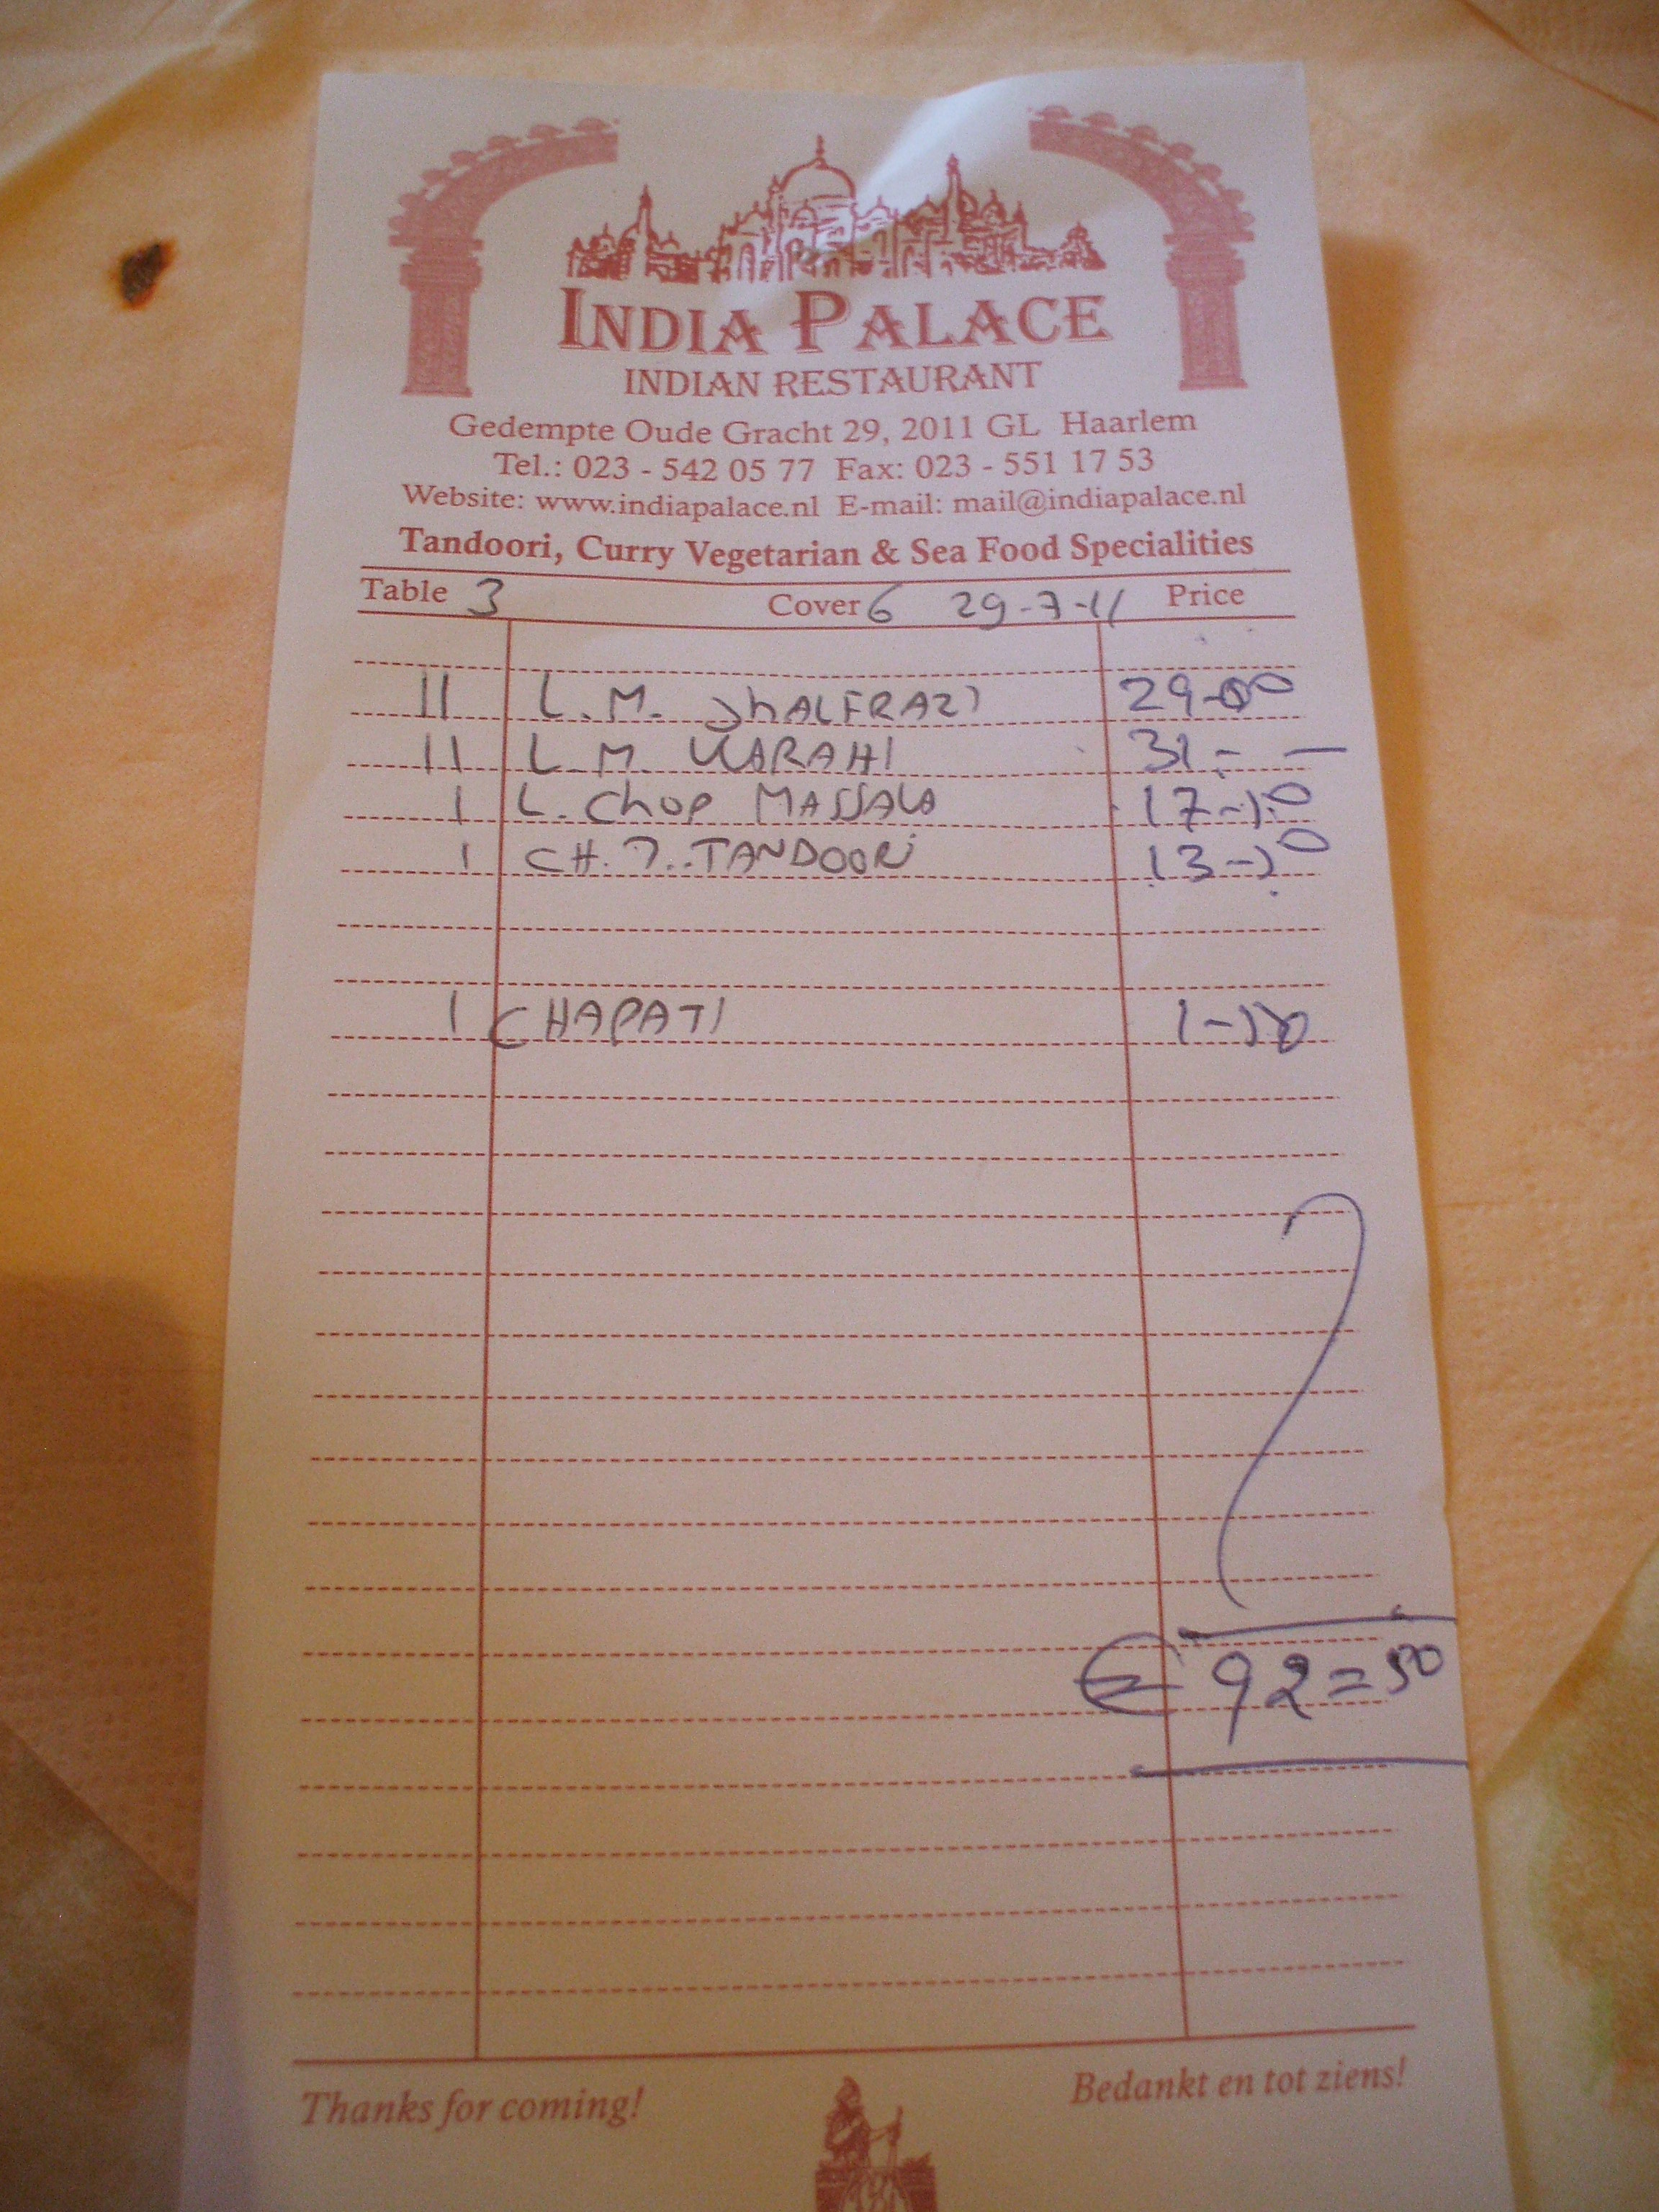 INDIA PALACE
INDIAN RESTAURANT
Gedempte Oude Gracht 29, 2011 GL Haarlem
Tel.: 023 - 542 05 77 Fax: 023 - 551 17 53
Website: www.indiapalace.nl E-mail: mail@indiapalace.nl
Tandoori, Curry Vegetarian & Sea Food Specialities
Table 3 Cover 6 29-7-11 Price
11 L.M. JhALFRAZI 29-00
11 L.M. KARAHI 31-—
1 L. Chop MASSALA 17-50
1 CH. T. TANDOORi 13-50
1 CHAPATI 1-50
€ 92=50
Thanks for coming! Bedankt en tot ziens!